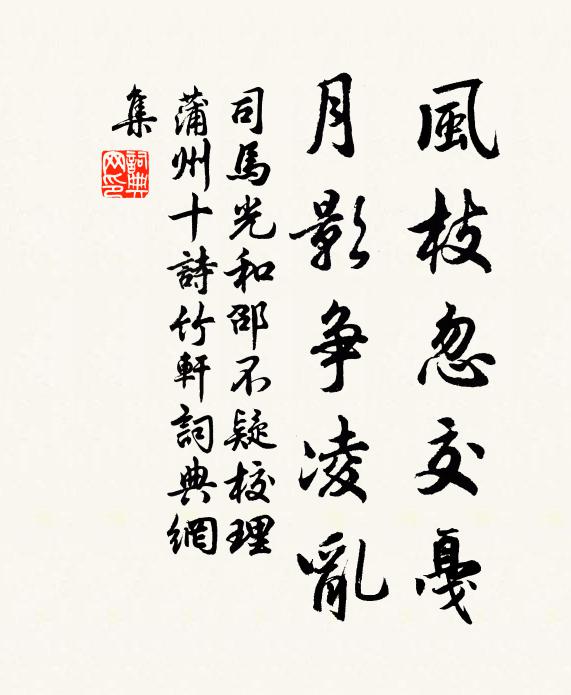 風枝忽交戛
月影争凌亂
司馬光和邵不疑校理
蒲州十詩竹軒詞典網
集
詞典网印